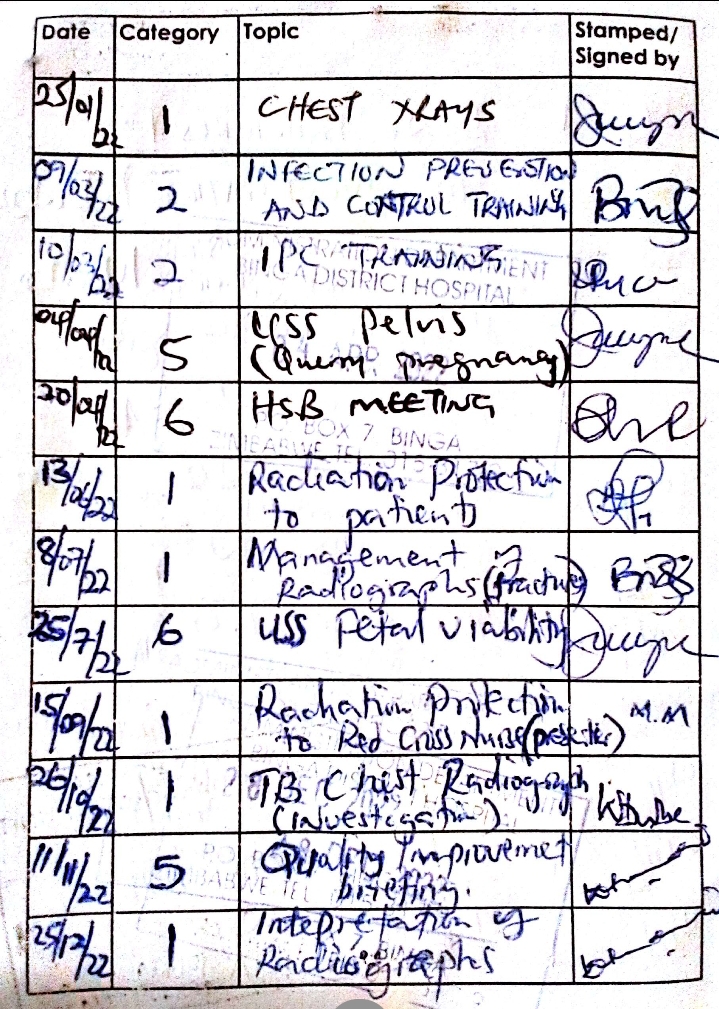 Date Category Topic Stamped/
Signed by
25/01/22 1 CHEST XRAYS
09/02/22 2 INFECTION PREVENTION
AND CONTROL TRAINING
10/02/22 2 IPC TRAINING
DISTRICT HOSPITAL
5 USS Pelvis
(Query pregnancy)
20/04/22 6 HSB MEETING
BOX 7 BINGA
13/06/22 1 Radiation Protection
to patients
8/07/22 1 Management of
Radiographs (fractures)
25/7/22 6 USS Fetal viability
15/09/22 1 Radiation Protection
to Red Cross Nurse (presenter) M.M
26/10/22 1 TB Chest Radiograph
(investigation)
11/11/22 5 Quality Improvemet
briefing.
25/12/22 1 Intepretation of
Radiographs